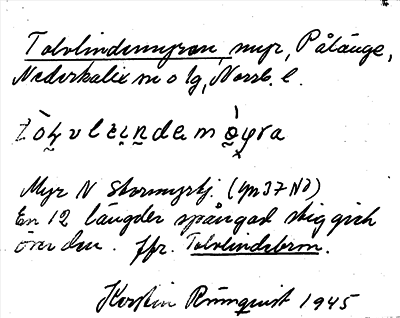 Tolvlindemyran, myr, Pålänge,
Nederkalix sn o lg, Norrb. l.
Myr N Stormyrbj. (
En 12 längder spångad stig gick
över den. Jfr. Tolvlindebron.
Kerstin Rönnquist 1945